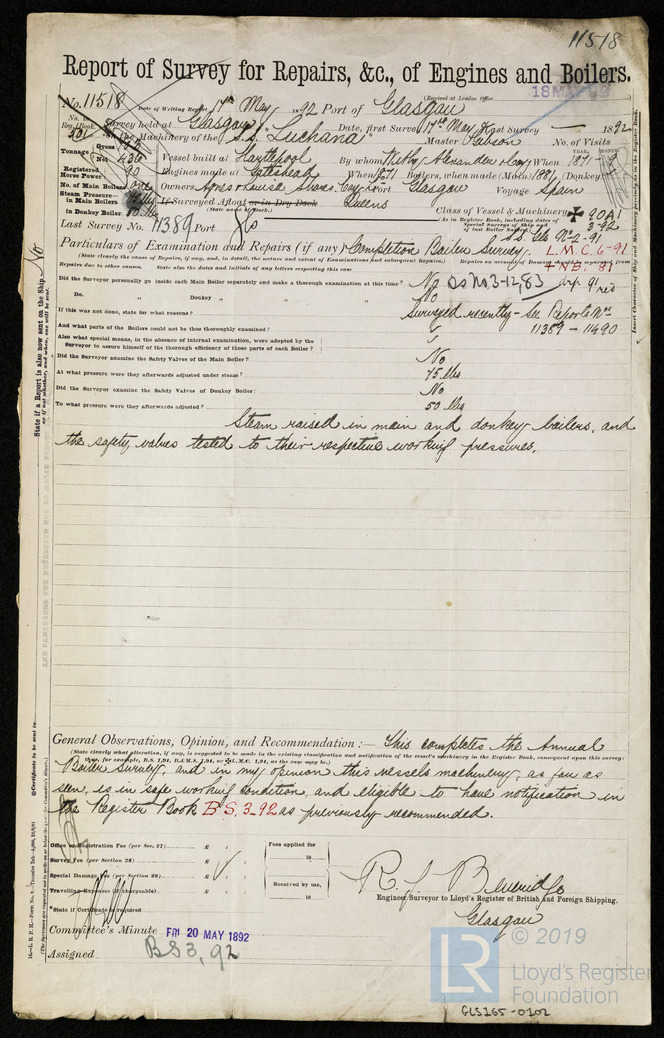 11518
Report of Survey for Repairs, &c., of Engines and Boilers.
(Received at London Office
18 MAY 92
No. 11518 Date of Writing Report 17th May 1892 Port of Glasgow
No. in Reg. Book. Survey held at Glasgow Date, first Survey 17th May Last Survey — 1892
501 on the Machinery of the S.S. "Luchana" Master Gibson No. of Visits
Tonnage Gross
Net 436 Vessel built at Hartlepool By whom When 1871
Registered Horse Power 90 Engines made at Gateshead When 1871 Boilers, when made (Main) 1881 (Donkey)
No. of Main Boilers one Owners Port Glasgow Voyage Spain
Steam Pressure in Main Boilers If Surveyed Afloat or in Dry Dock Queens
(State name of Dock.)
in Donkey Boiler
Class of Vessel & Machinery ✠ 90A1
As in Register Book, including dates of Special Surveys of Ship and of last Boiler Survey. 3-92
Last Survey No. 11389 Port Gls
S.S. Gls No. 2-91
Particulars of Examination and Repairs (if any) Completion Boiler Survey. L.M.C. 6-91
(State clearly the cause of Repairs, if any, and, in detail, the nature and extent of Examinations and subsequent Repairs.) Repairs on account of Damage should be separated from
+ N.B. 81
Repairs due to other causes. State also the dates and initials of any letters respecting this case
Did the Surveyor personally go inside each Main Boiler separately and make a thorough examination at this time? No
Do. „ Donkey „ „ „ No
If this was not done, state for what reasons? Surveyed recently - See Reports Nos
And what parts of the Boilers could not be thoroughly examined? 11389 - 11490
Also what special means, in the absence of internal examination, were adopted by the
Surveyor to assure himself of the thorough efficiency of those parts of each Boiler?
Did the Surveyor examine the Safety Valves of the Main Boiler? No
At what pressure were they afterwards adjusted under steam? 75 lbs
Did the Surveyor examine the Safety Valves of Donkey Boiler? No
To what pressure were they afterwards adjusted? 50 lbs
Steam raised in main and donkey boilers, and
the safety valves tested to their respective working pressures.
State if a Report is also now sent on the Ship, No
or if not, whether, and when, one will be sent.
Insert Character of Ship and Machinery precisely as in the Register Book.
General Observations, Opinion, and Recommendation :— This completes the Annual
(State clearly what alteration, if any, is suggested to be made in the existing classification and notification of the vessel's machinery in the Register Book, consequent upon this survey;
thus, for example, B.S. 1,91, B.&M.S. 1,91, or ✠L.M.C. 1,91, as the case may be.)
Boiler Survey, and in my opinion this vessels machinery, as far as
seen, is in safe working condition, and eligible to have notification in
the Register Book B S. 3.92 as previously recommended.
Office or Registration Fee (per Sec. 27) £ Fees applied for
Survey Fee (per Section 28) £ 18
Special Damage Fee (per Section 28) £
Travelling Expenses (if chargeable) £ Received by me,
18
*State if Certificate is required
R. J. Beveridge
Engineer Surveyor to Lloyd's Register of British and Foreign Shipping.
Glasgow
Committee's Minute FRI 20 MAY 1892
Assigned BS 3, 92
Certificate to be sent to
LR
© 2019
Lloyd's Register
Foundation
GLS165-0102